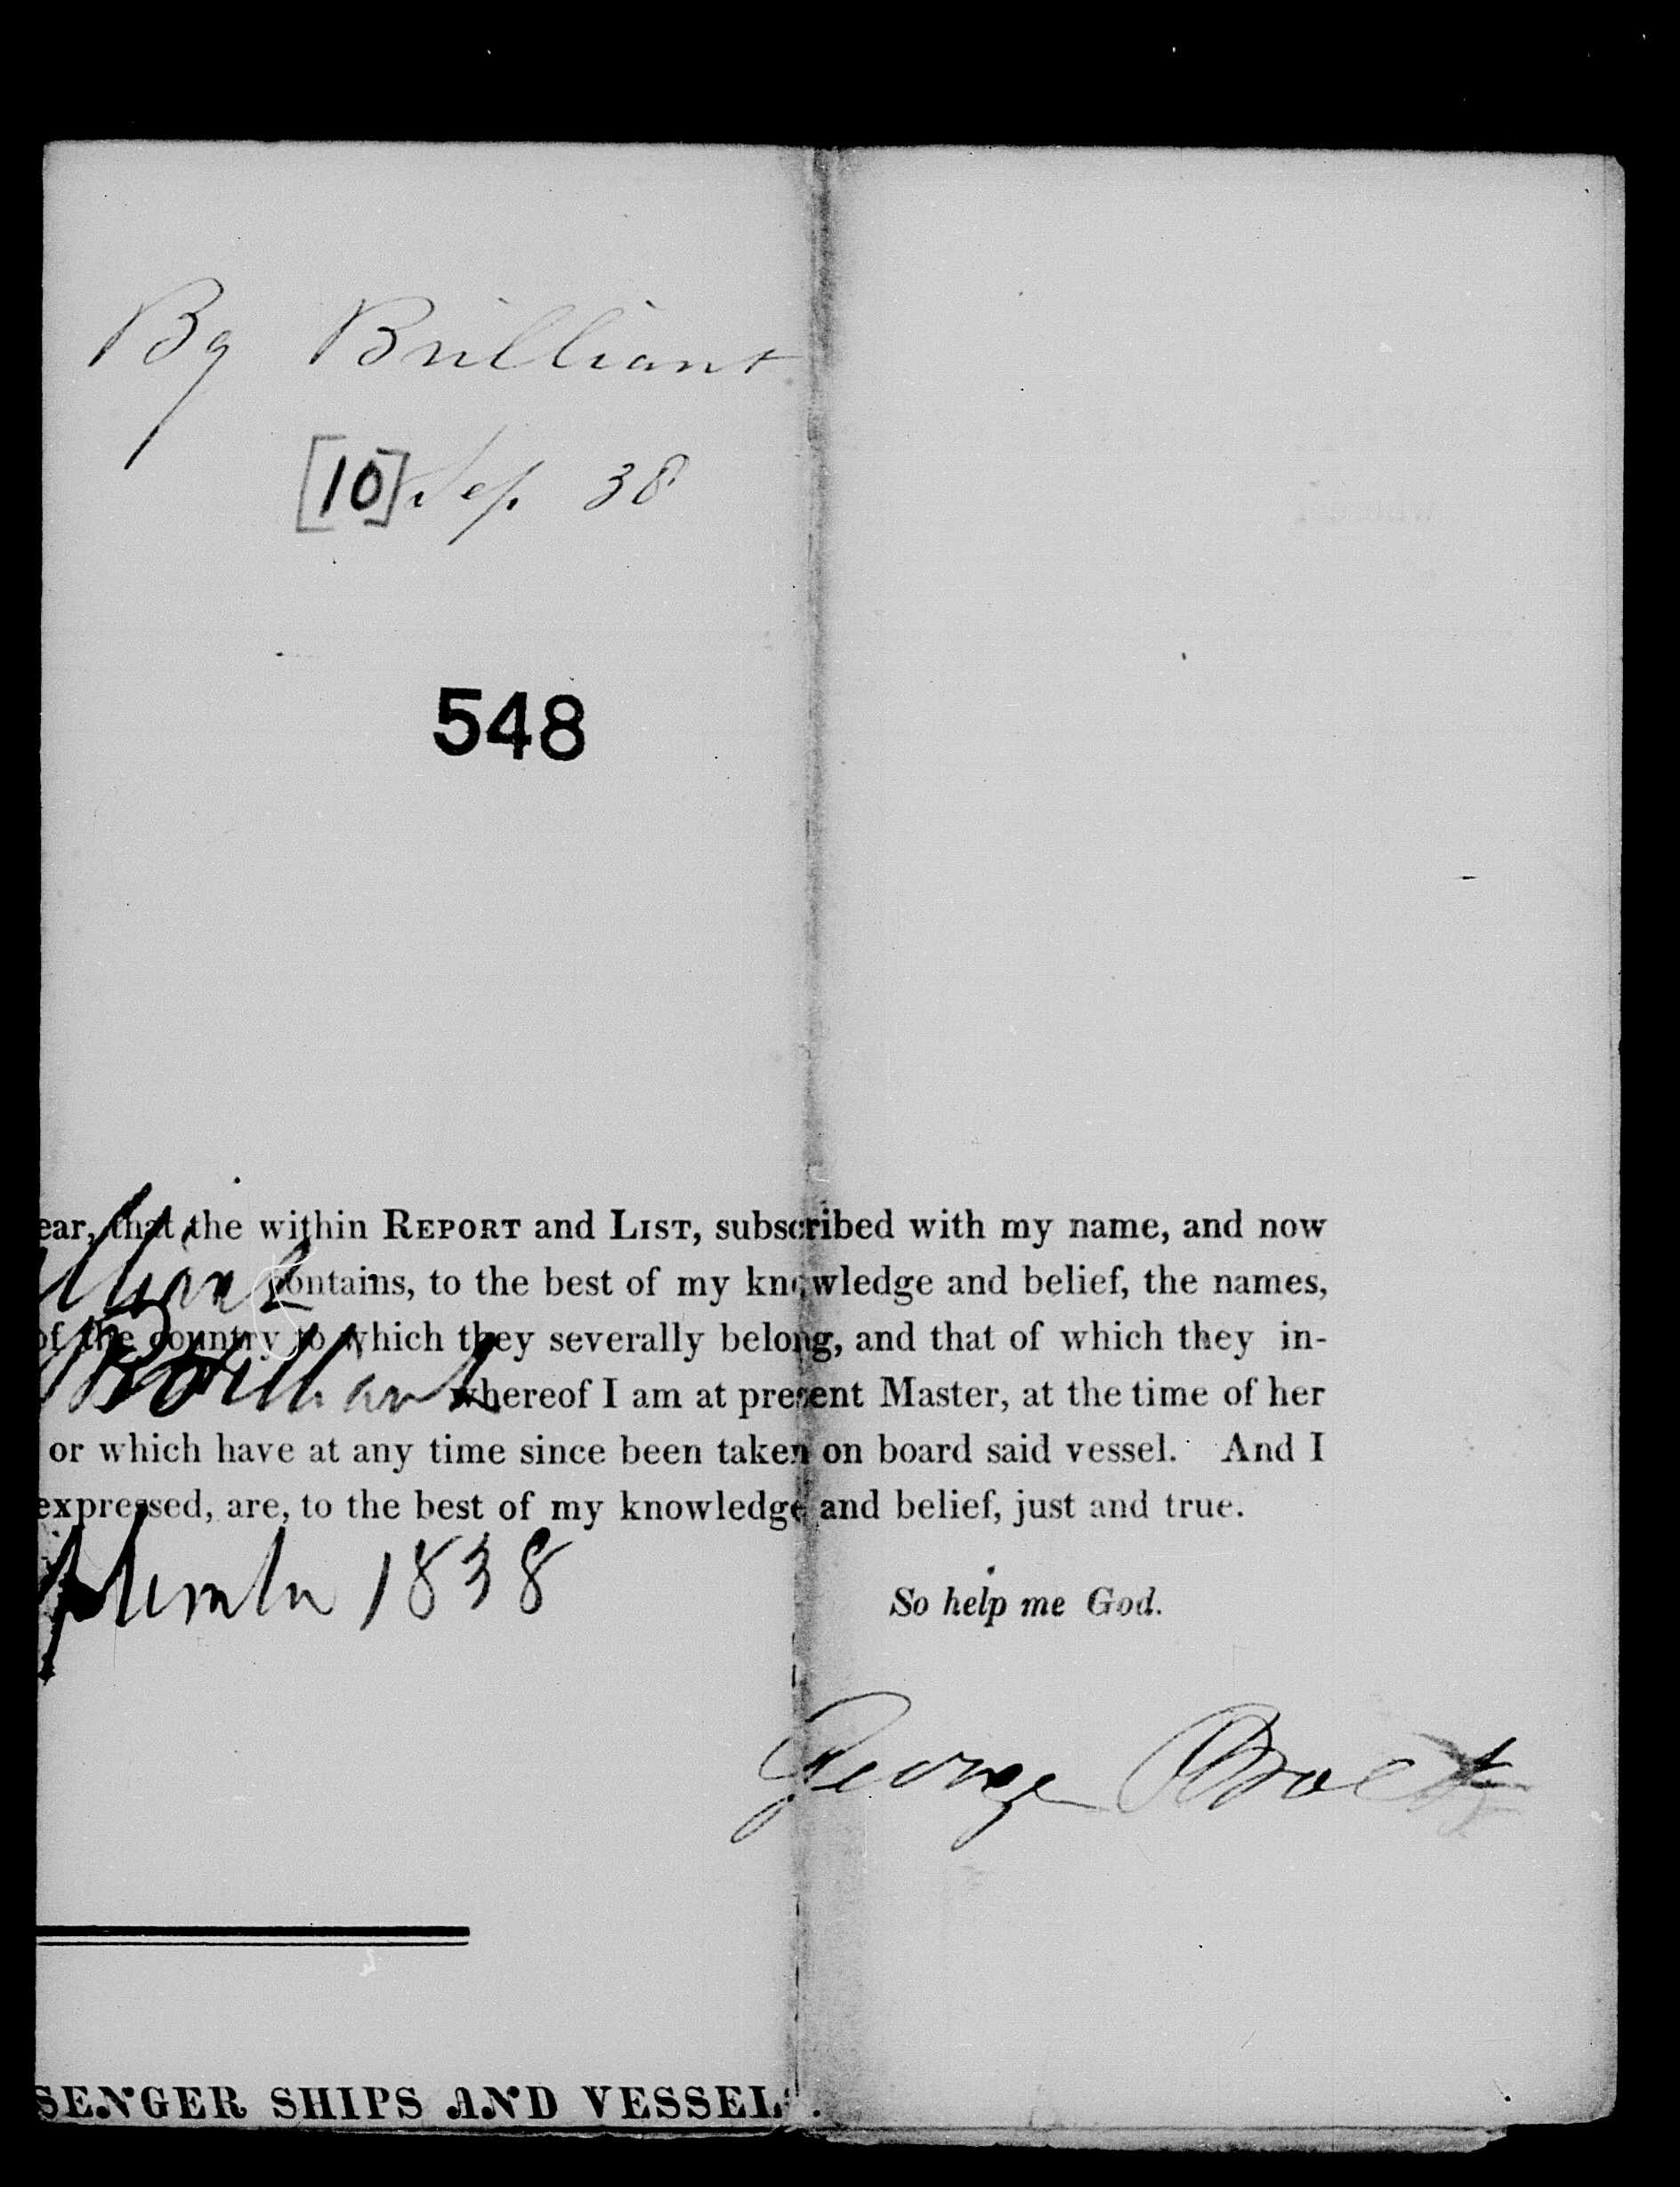 Bg Brilliant
[10] Sep. 38
548
ear, that the within REPORT and LIST, subscribed with my name, and now
illiant contains, to the best of my knowledge and belief, the names,
of the country to which they severally belong, and that of which they in-
Brilliant whereof I am at present Master, at the time of her
or which have at any time since been taken on board said vessel. And I
expressed, are, to the best of my knowledge and belief, just and true.
ptember 1838
So help me God.
George
SENGER SHIPS AND VESSEL